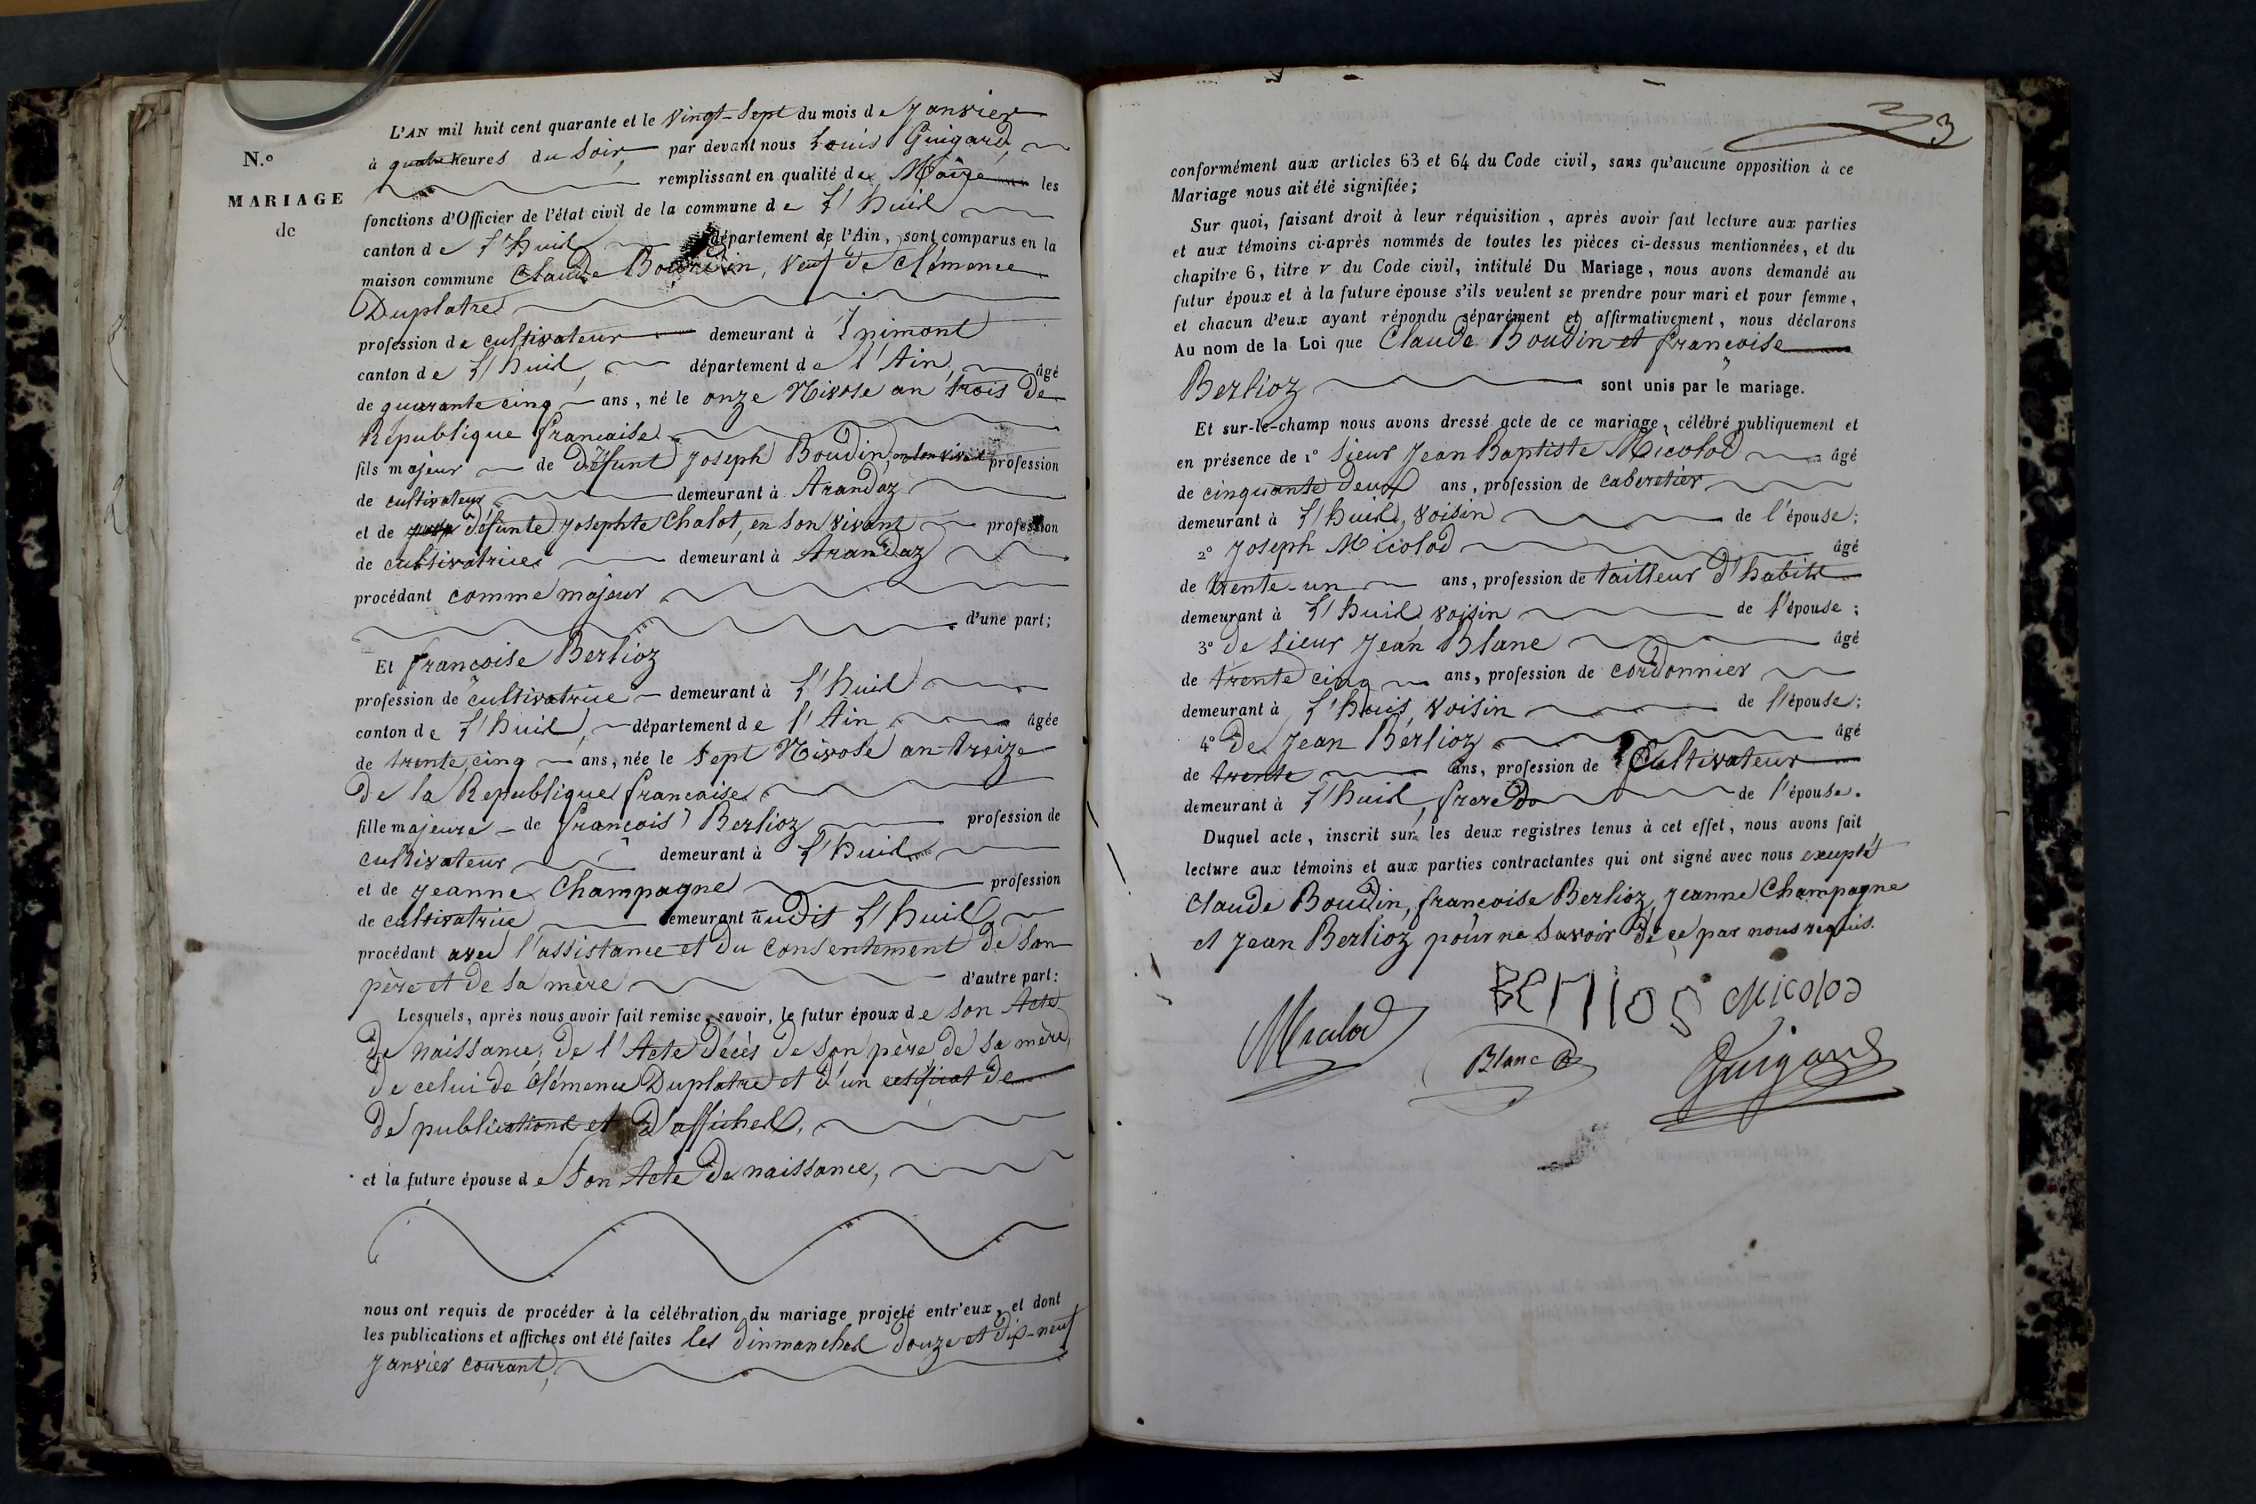 N.º
MARIAGE
de
L'AN mil huit cent quarante et le vingt-sept du mois de Janvier
à quatre heures du soir, par devant nous Louis Guigard,
remplissant en qualité de Maire les
fonctions d'Officier de l'état civil de la commune de L'huis
canton de L'huis département de l'Ain, sont comparus en la
maison commune Claude Boudin, veuf de Clémence
Duplatre
profession de cultivateur demeurant à Inimont
canton de L'huis, département de l'Ain, âgé
de quarante cinq ans, né le onze Nivose an trois De
République française
fils majeur de Défunt Joseph Boudin, en son vivant profession
de cultivateur demeurant à Arandaz
et de défunte Josephte Chalot, en son vivant profession
de cultivatrice demeurant à Arandaz
procédant comme majeur
d'une part;
Et françoise Berlioz
profession de cultivatrice demeurant à L'huis
canton de L'huis, département de l'Ain, âgée
de trente cinq ans, née le sept Nivose an treize
De la République française
fille majeure de françois Berlioz profession de
cultivateur demeurant à L'huis
et de Jeanne Champagne profession
de cultivatrice demeurant audit L'huis
procédant avec l'assistance et du consentement de son
père et de sa mère d'autre part:
Lesquels, après nous avoir fait remise, savoir, le futur époux de son Acte
de naissance, de l'Acte décès de son père, de sa mère,
de celui de Clémence Duplatre et d'un cetificat de
de publications et d'affiches,
et la future épouse de son Acte de naissance,
nous ont requis de procéder à la célébration du mariage projeté entr'eux, et dont
les publications et affiches ont été faites les dinmanches douze et dix-neuf
Janvier courant,
33
conformément aux articles 63 et 64 du Code civil, sans qu'aucune opposition à ce
Mariage nous ait été signifiée;
Sur quoi, faisant droit à leur réquisition, après avoir fait lecture aux parties
et aux témoins ci-après nommés de toutes les pièces ci-dessus mentionnées, et du
chapitre 6, titre v du Code civil, intitulé Du Mariage, nous avons demandé au
futur époux et à la future épouse s'ils veulent se prendre pour mari et pour femme,
et chacun d'eux ayant répondu séparément et affirmativement, nous déclarons
Au nom de la Loi que Claude Boudin et françoise
Berlioz sont unis par le mariage.
Et sur-le-champ nous avons dressé acte de ce mariage, célébré publiquement et
en présence de 1º Sieur Jean Baptiste Micolod âgé
de cinquante deux ans, profession de cabaretier
demeurant à L'huis, voisin de l'épouse;
2º Joseph Micolod âgé
de trente-un ans, profession de tailleur d'habits
demeurant à L'huis, voisin de l'épouse;
3º de sieur Jean Blanc âgé
de trente cinq ans, profession de cordonnier
demeurant à L'huis, voisin de l'épouse;
4º de Jean Berlioz âgé
de trente ans, profession de Cultivateur
demeurant à L'huis, frere de l'épouse.
Duquel acte, inscrit sur les deux registres tenus à cet effet, nous avons fait
lecture aux témoins et aux parties contractantes qui ont signé avec nous exeupté
Claude Boudin, françoise Berlioz, Jeanne Champagne
et Jean Berlioz pour ne savoir de ce par nous requis.
Berlios Micolod
Micolod
Blanc
Guigard